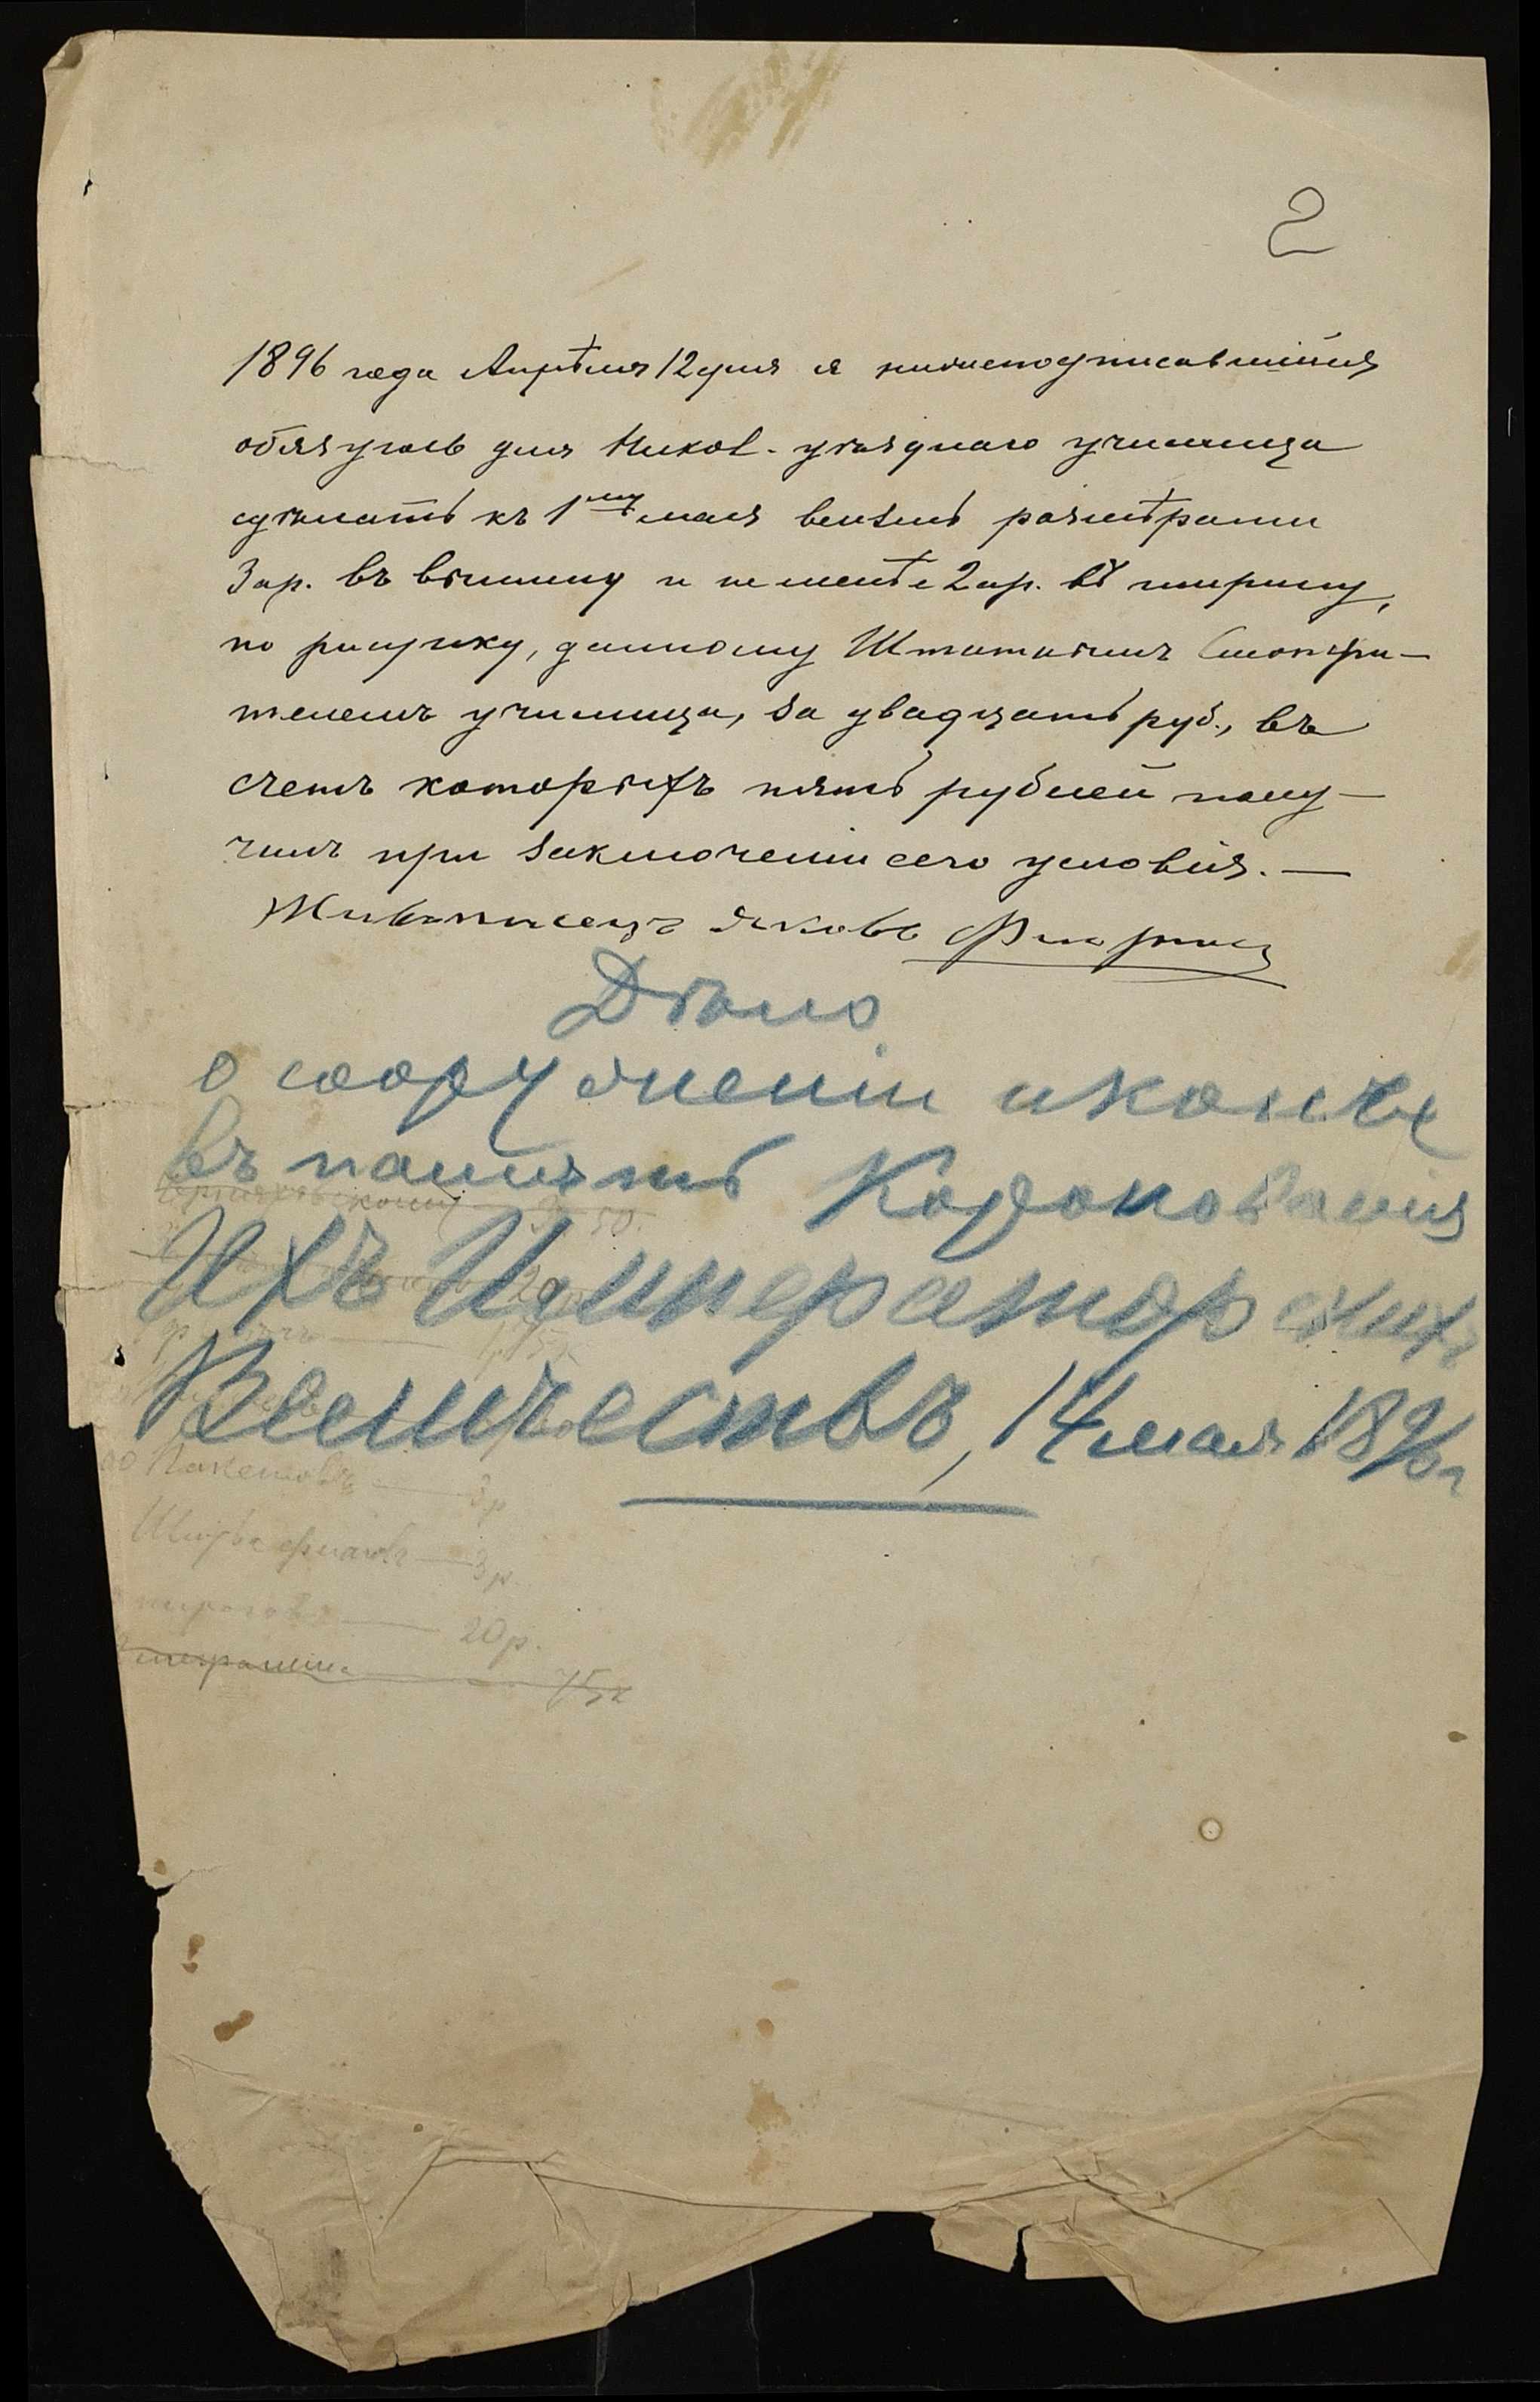 2
1896 года Апрѣля 12 дня я нижеподписавшійся
обязуюсь для Никол. уѣзднаго училища
сдѣлать къ 1му мая вензель размѣрами
3 ар. въ вышину и не менѣе 2 ар. въ ширину,
по рисунку, данному Штатнымъ Смотри-
телемъ училища, за двадцать руб., въ
счетъ которыхъ пять рублей полу-
чилъ при заключеніи сего условія. —
Живописецъ Яковъ
Дѣло
о сооруженіи иконы
въ память Коронованія
Ихъ Императорскихъ
Величествъ, 14 мая 1896 г
3р
3р
20р.